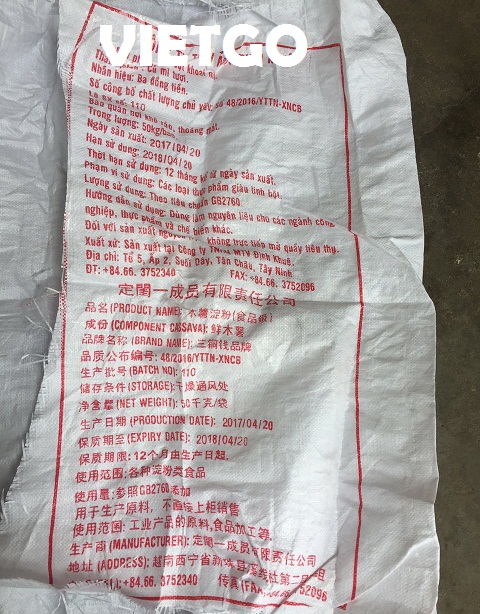 VIETGO
Nhãn hiệu: Ba đồng tiền.
Số công bố chất lượng chủ yếu: số 48/2016/YTTN-XNCB
Lô SX số: 110
Bảo quản nơi khô ráo, thoáng mát.
Trọng lượng: 50kg/bao
Ngày sản xuất: 2017/04/20
Hạn sử dụng: 2018/04/20
Thời hạn sử dụng: 12 tháng kể từ ngày sản xuất.
Phạm vi sử dụng: Các loại thực phẩm giàu tinh bột.
Lượng sử dụng: Theo tiêu chuẩn GB2760
Hướng dẫn sử dụng: Dùng làm nguyên liệu cho các ngành công
nghiệp, thực phẩm và chế biến khác.
Đối với sản xuất nguyên không trực tiếp mở quầy tiêu thụ.
Xuất xứ: Sản xuất tại Công ty TNHH MTV Định Khuê.
Địa chỉ: Tổ 5, Ấp 2, Suối Dây, Tân Châu, Tây Ninh
ĐT: +84.66. 3752340 FAX: +84.66. 3752096
定閨一成员有限责任公司
品名(PRODUCT NAME): 木薯淀粉(食品级)
成份(COMPONENT CASSAVA): 鲜木薯
品牌名称(BRAND NAME): 三铜钱品牌
品质公布编号: 48/2016/YTTN-XNCB
生产批号(BATCH NO): 110
储存条件(STORAGE): 干燥通风处
净含量(NET WEIGHT): 50千克/袋
生产日期(PRODUCTION DATE): 2017/04/20
保质期至(EXPIRY DATE): 2018/04/20
保质期限: 12个月由生产日起.
使用范围: 各种淀粉类食品
使用量: 参照GB2760添加
用于生产原料, 不直接上柜销售
使用范围: 工业产品的原料,食品加工等.
生产商(MANUFACTURER): 定閨一成员有限责任公司
地址(ADDRESS): 越南西宁省新珠县 社第二 组
3752340 传真(FAX): +84.66. 3752096